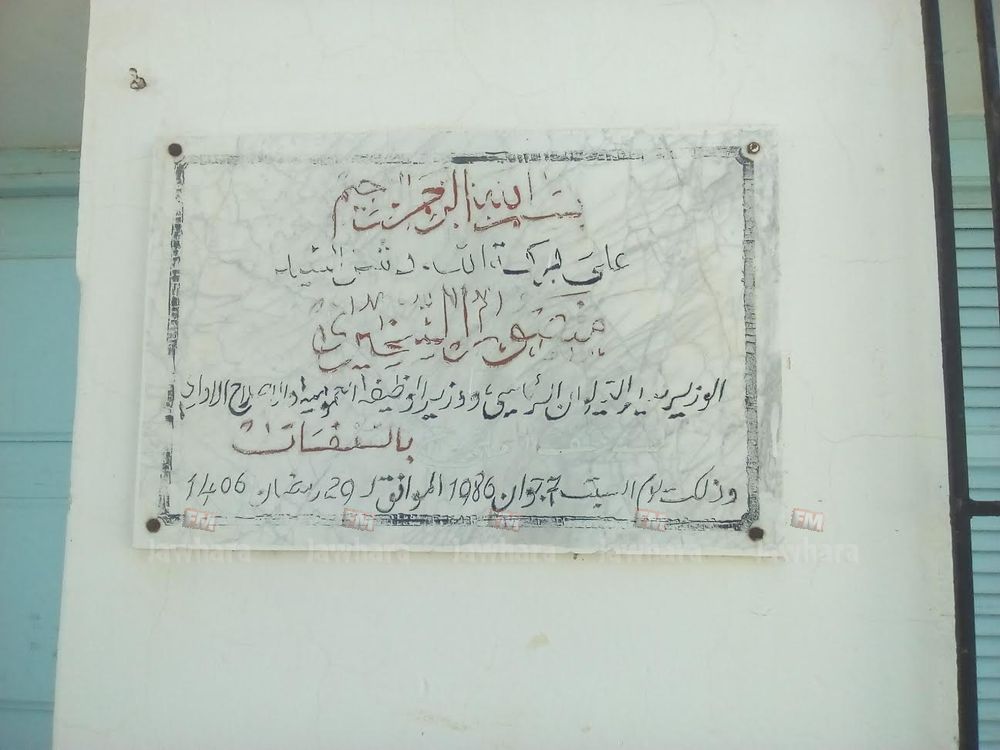 بسم الله الرحمن الرحيم
على بركة الله دشن السيد
منصور السخيري
الوزير مدير الديوان الرئاسي ووزير الوظيفة العمومية والاصلاح الاداري
وذلك يوم السبت 7 جوان 1986 الموافق لـ 29 رمضان 1406
FM FM FM FM FM
Jawhara Jawhara Jawhara Jawhara Jawhara